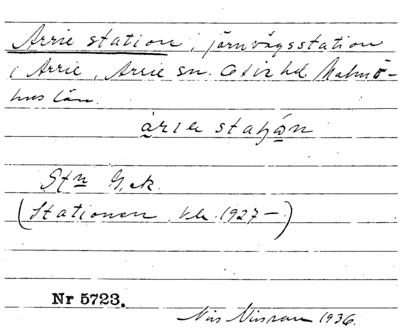 Arrie station, järnvägsstation
i Arrie, Arrie sn. Oxie hd Malmö-
hus län.
Stn G.ek.
(Stationen, bl. 1927—)
Nr 5723.
Nils Nilsson 1936.